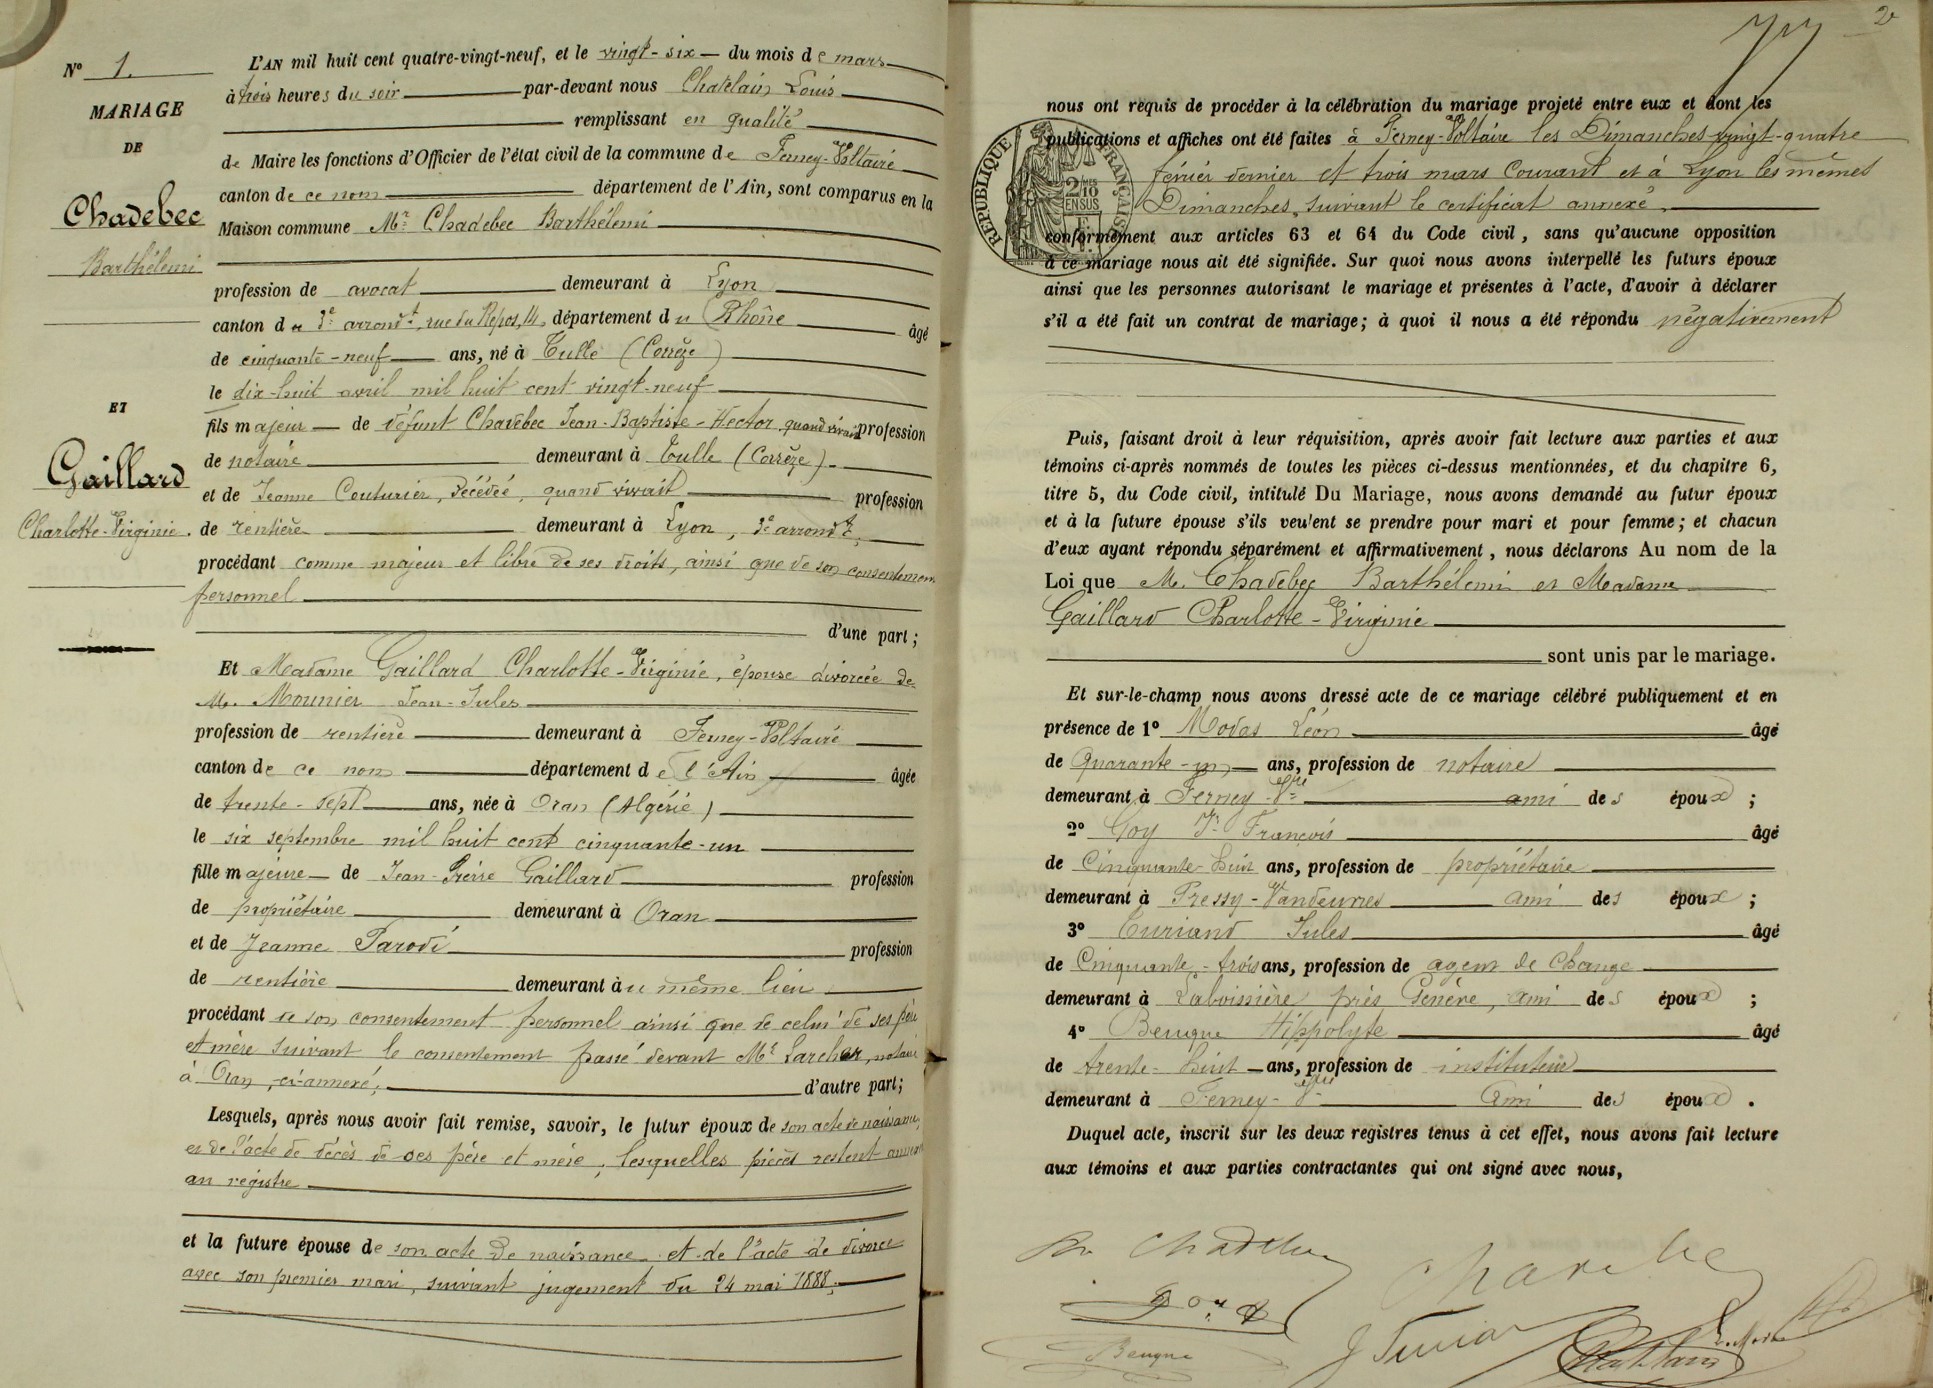 N° 1.
MARIAGE
DE
Chadebec
Barthélemi
ET
Gaillard
Charlotte-Virginie.
L'AN mil huit cent quatre-vingt-neuf, et le vingt-six du mois de mars
à trois heures du soir par-devant nous Chatelain Louis
remplissant en qualité
de Maire les fonctions d'Officier de l'état civil de la commune de Ferney-Voltaire
canton de ce nom département de l'Ain, sont comparus en la
Maison commune Mr Chadebec Barthélemi
profession de avocat demeurant à Lyon
canton du 3e arrondt, rue du Repos, 14, département du Rhône âgé
de cinquante-neuf ans, né à Tulle (Corrèze)
le dix-huit avril mil huit cent vingt-neuf
fils majeur de défunt Chadebec Jean-Baptiste-Hector quand vivait profession
de notaire demeurant à Tulle (Corrèze)
et de Jeanne Couturier, décédée, quand vivait profession
de rentière demeurant à Lyon, 3e arrondt,
procédant comme majeur et libre de ses droits, ainsi que de son consentement
personnel
d'une part;
Et Madame Gaillard Charlotte-Virginie, épouse divorcée de
M. Mounier Jean-Jules
profession de rentière demeurant à Ferney-Voltaire
canton de ce nom département de l'Ain âgée
de trente-sept ans, née à Oran (Algérie)
le six septembre mil huit cent cinquante-un
fille majeure de Jean-Pierre Gaillard profession
de propriétaire demeurant à Oran
et de Jeanne Parodi profession
de rentière demeurant au même lieu
procédant de son consentement personnel ainsi que de celui de ses père
et mère suivant le consentement passé devant Me Larcher, notaire
à Oran, ci-annexé, d'autre part;
Lesquels, après nous avoir fait remise, savoir, le futur époux de son acte de naissance,
et de l'acte de décès de ses père et mère, lesquelles pièces restent annexées
au registre
et la future épouse de son acte de naissance et de l'acte de divorce
avec son premier mari, suivant jugement du 24 mai 1888.
2
nous ont requis de procéder à la célébration du mariage projeté entre eux et dont les
publications et affiches ont été faites à Ferney-Voltaire les Dimanches vingt-quatre
février dernier et trois mars courant et à Lyon les mêmes
Dimanches, suivant le certificat annexé,
RÉPUBLIQUE FRANÇAISE
2/10
EN SUS
conformément aux articles 63 et 64 du Code civil, sans qu'aucune opposition
à ce mariage nous ait été signifiée. Sur quoi nous avons interpellé les futurs époux
ainsi que les personnes autorisant le mariage et présentes à l'acte, d'avoir à déclarer
s'il a été fait un contrat de mariage; à quoi il nous a été répondu négativement
Puis, faisant droit à leur réquisition, après avoir fait lecture aux parties et aux
témoins ci-après nommés de toutes les pièces ci-dessus mentionnées, et du chapitre 6,
titre 5, du Code civil, intitulé Du Mariage, nous avons demandé au futur époux
et à la future épouse s'ils veulent se prendre pour mari et pour femme; et chacun
d'eux ayant répondu séparément et affirmativement, nous déclarons Au nom de la
Loi que M. Chadebec Barthélemi et Madame
Gaillard Charlotte-Virginie
sont unis par le mariage.
Et sur-le-champ nous avons dressé acte de ce mariage célébré publiquement et en
présence de 1° Modas Léon âgé
de Quarante-un ans, profession de notaire
demeurant à Ferney-Vre ami des époux;
2° Goy Jn François âgé
de Cinquante-huit ans, profession de propriétaire
demeurant à Pressy-Vandeuvres ami des époux;
3° Turiand Jules âgé
de Cinquante-trois ans, profession de agent de Change
demeurant à Laboissière près Genève, ami des époux;
4° Beugne Hippolyte âgé
de trente-huit ans, profession de instituteur
demeurant à Ferney-Vre Ami des époux.
Duquel acte, inscrit sur les deux registres tenus à cet effet, nous avons fait lecture
aux témoins et aux parties contractantes qui ont signé avec nous,
Beugne